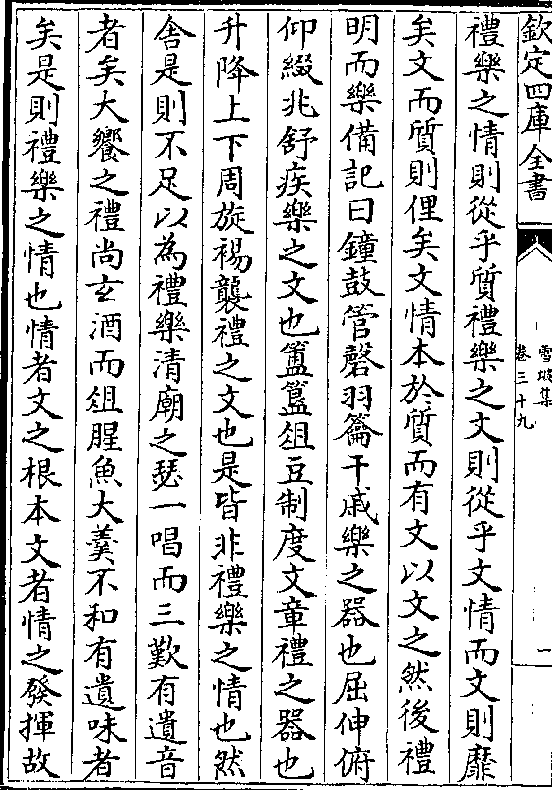 欽定四庫全書
雪坡集
卷三十九
一
禮樂之情則從乎質禮樂之文則從乎文情而文則靡
矣文而質則俚矣文情本於質而有文以文之然後禮
明而樂備記曰鐘鼓管磬羽籥干戚樂之器也屈伸俯
仰綴兆舒疾樂之文也簠簋俎豆制度文章禮之器也
升降上下周旋裼襲禮之文也是皆非禮樂之情也然
舍是則不足以為禮樂清廟之瑟一唱而三歎有遺音
者矣大饗之禮尚玄酒而俎腥魚大羹不和有遺味者
矣是則禮樂之情也情者文之根本文者情之發揮故